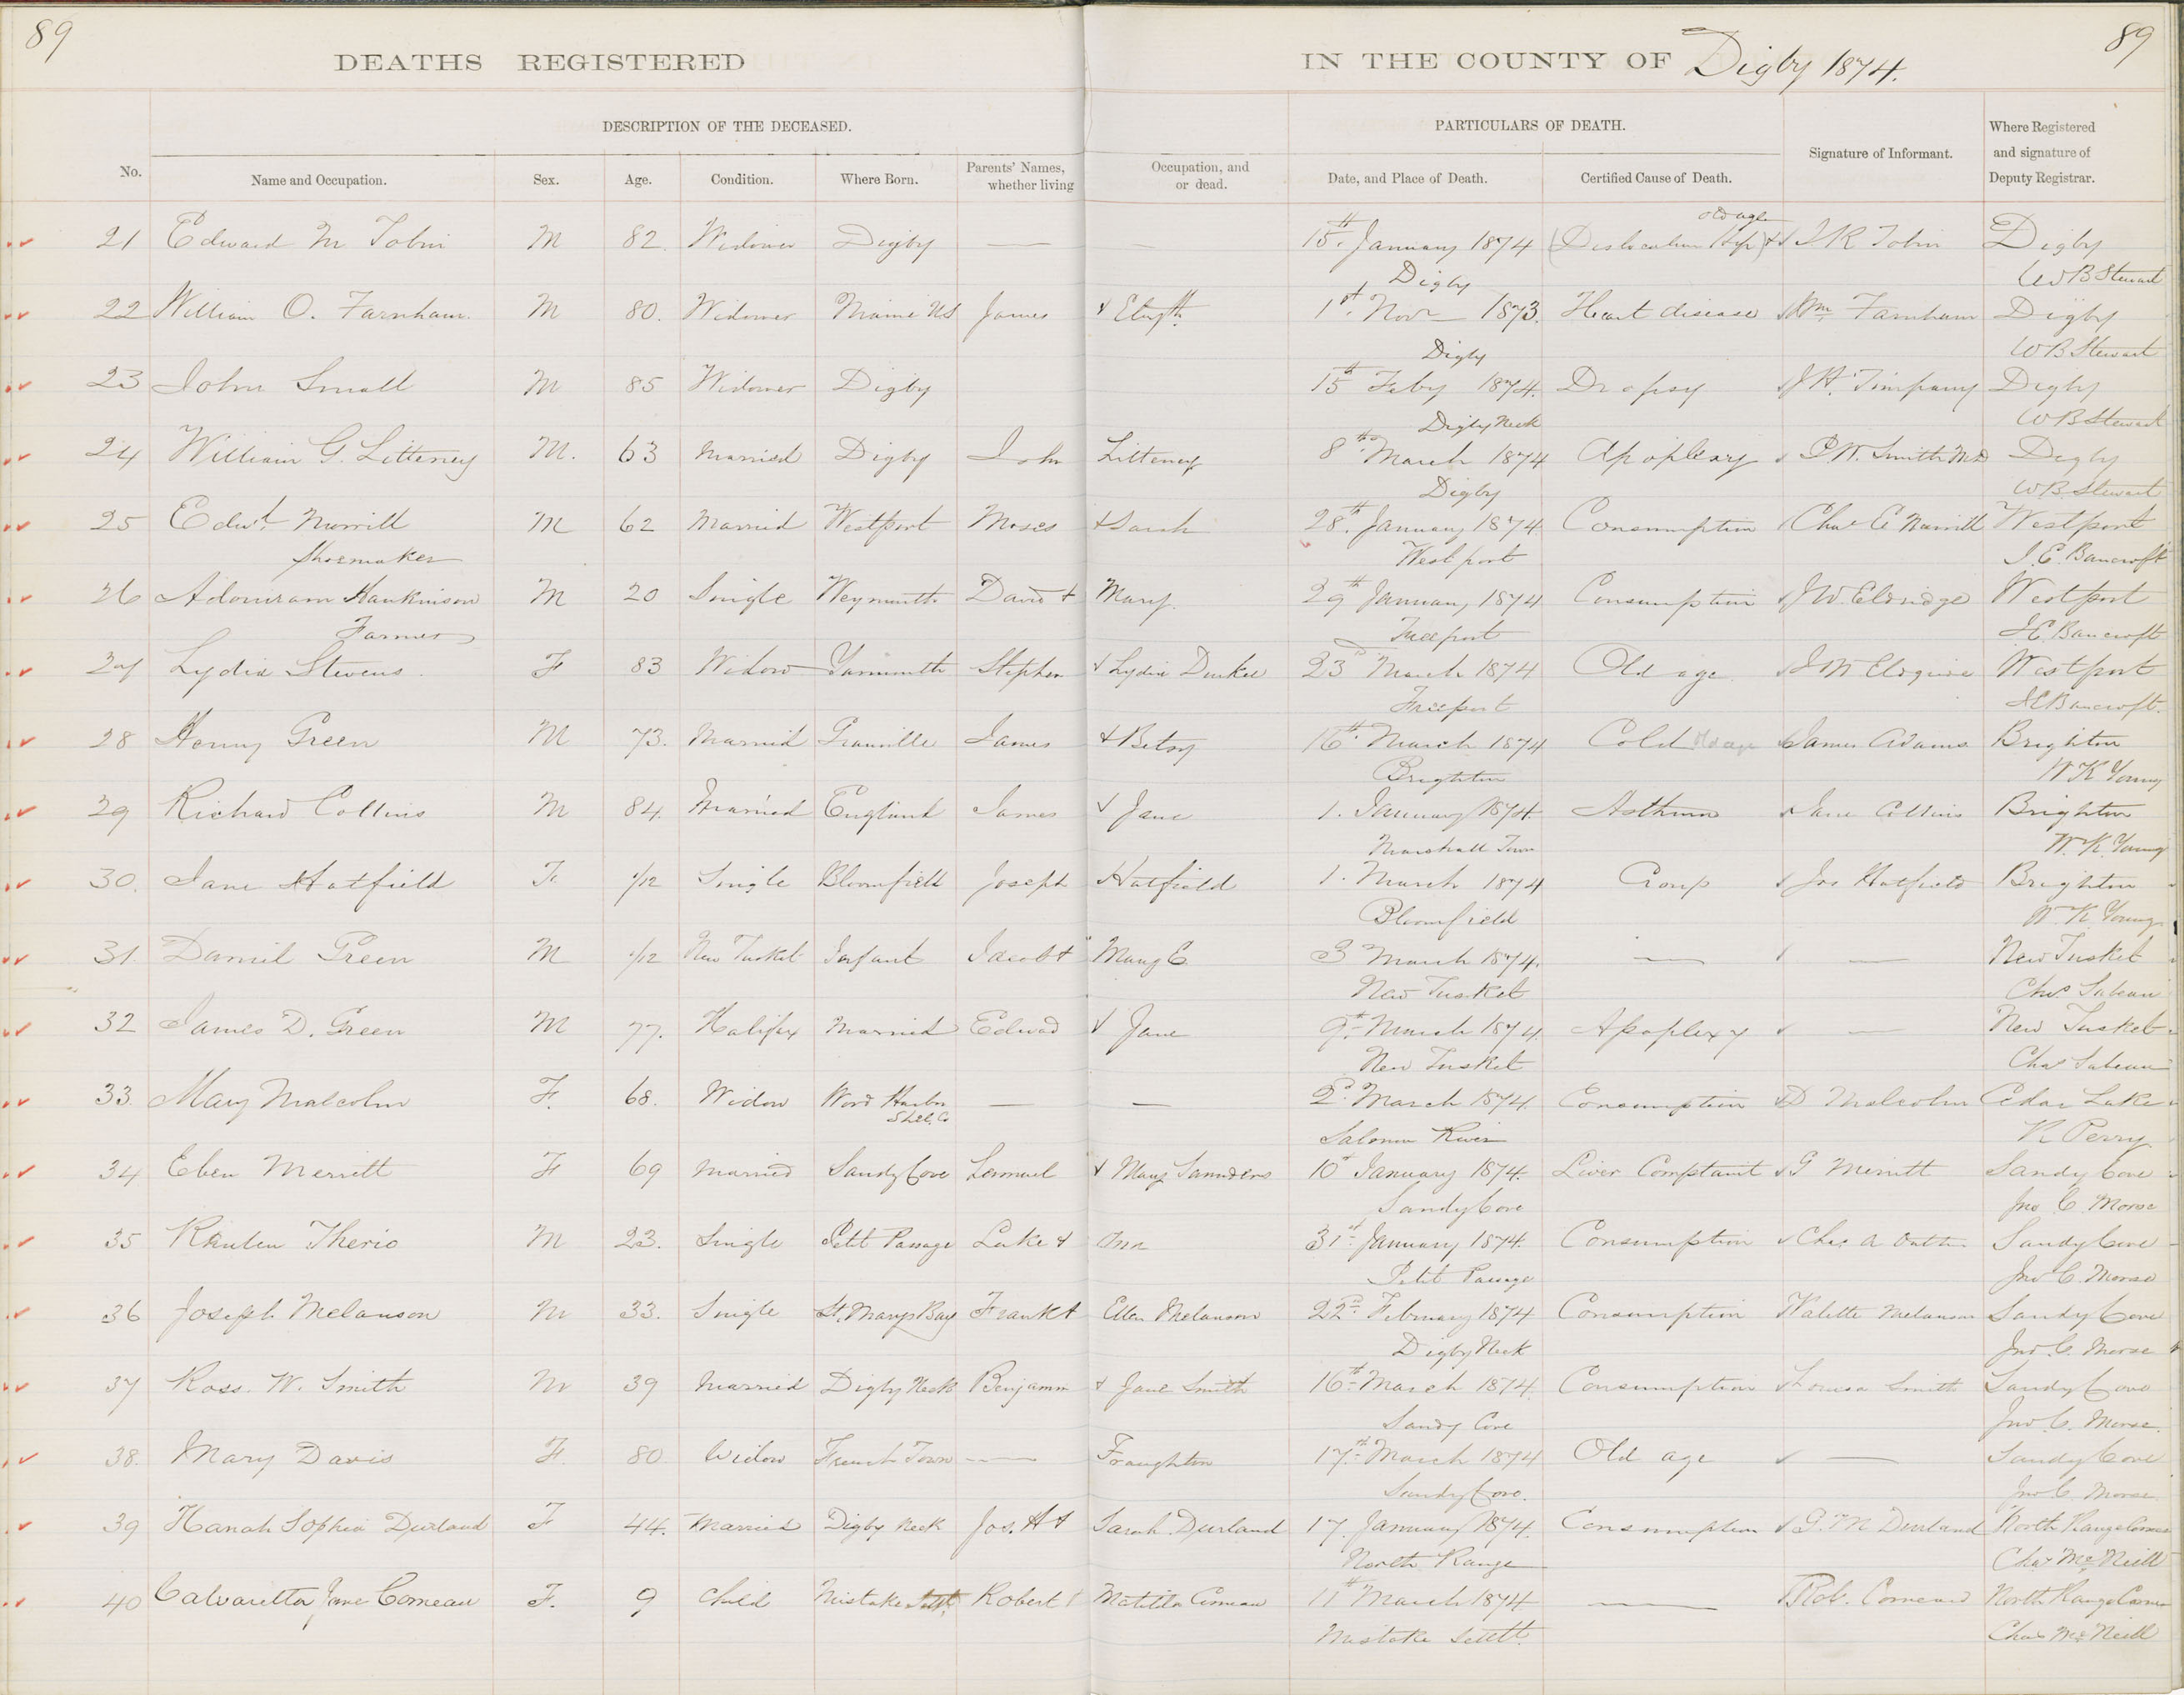 89
89
DEATHS REGISTERED IN THE COUNTY OF Digby 1874.
DESCRIPTION OF THE DECEASED. PARTICULARS OF DEATH.
No. Name and Occupation. Sex. Age. Condition. Where Born. Parents' Names, whether living Occupation, and or dead. Date, and Place of Death. Certified Cause of Death. Signature of Informant. Where Registered and signature of Deputy Registrar.
old age
21 Edward M Tobin M 82. Widower Digby — — 15th. January 1874 (Dislocation Hip) & J. R Tobin Digby
Digby W B Stewart
22 William O. Farnham. M 80. Widower Maine US James & Elizth. 1st. Novr 1873. Heart disease Wm Farnham Digby
Digby W B Stewart
23 John Small M 85 Widower Digby 15th Feby 1874. Dropsy J H. Timpany Digby
Digby Neck W B Stewart
24 William G. Litteney M. 63 Married Digby John Litteney 8th. March 1874 Apoplexy P. W. Smith MD Digby
Digby W B Stewart
25 Edwd. Morrill M 62 Married Westport Moses & Sarah 28th. January 1874. Consumption Chas E Morrill Westport
Shoemaker Westport J. E. Bancroft
26 Adoniram Hankinson M 20 Single Weymouth David & Mary. 29th January 1874 Consumption J W. Eldridge Westport
Farmer Freeport J E. Bancroft
27 Lydia Stevens. F 83 Widow Yarmouth Stephen & Lydia Durkee 23rd March 1874 Old age J W Westport
Freeport J E Bancroft.
28 Henry Green M 73. Married Granville James & Betsy 16th. March 1874 Cold old age James Adams Brighton
Brighton W K Young
29 Richard Collins M 84. Married England James & Jane 1. January 1874. Asthma Jane Collins Brighton
Marshall Town W. K. Young
30. Jane Hatfield F. 1/12 Single Bloomfield Joseph Hatfield 1. March 1874 Croup Jos Hatfield Brighton
Bloomfield W. K. Young
31 Daniel Green M 1/12 New Tusket Infant Jacob & Mary E. 3 March 1874. — — New Tusket
New Tusket Chas Sabean
32 James D. Green M 77. Halifax Married Edwad & Jane 9th. March 1874. Apoplexy — New Tusket
New Tusket Chas Sabean
33 Mary Malcolm F. 68. Widow Wood Harbor — — 2d. March 1874. Consumption D Malcolm Cedar Lake
Shel. Co Salomn River R Perry
34 Eben Merritt F 69 Married Sandy Cove Lemuel & Mary Saunders 10th January 1874. Liver Complaint G Merritt Sandy Cove
Sandy Cove Jno C. Morse
35 Reuben Therio M 23. Single Petit Passage Luke & Ann 31st. January 1874. Consumption Chas. A Sandy Cove
Petit Passage Jno C. Morse
36 Joseph Melanson M 33. Single St. Marys Bay Frank & Ellen Melanson 22d. February 1874 Consumption Melanson Sandy Cove
Digby Neck Jno. C. Morse
37 Ross. W. Smith M 39 Married Digby Neck Benjamin & Jane Smith 16th. March 1874. Consumption Louisa Smith Sandy Cove
Sandy Cove Jno C. Morse.
38. Mary Davis F. 80. Widow French Town — Fraughton 17th. March 1874 Old age — Sandy Cove
Sandy Cove. Jno C. Morse
39 Hanah Sophia Durland F 44. Married Digby Neck Jos. H & Sarah Durland 17. January 1874. Consumption G. M Durland North Range Corner
North Range Chas McNeill
40 Calvaretta Jane Comeau F. 9 Child Mistake Sett. Robert & Matilda Comeau 11th March 1874 — Rob. Comeau North Range Corner
Mistake Settt. Chas McNeill